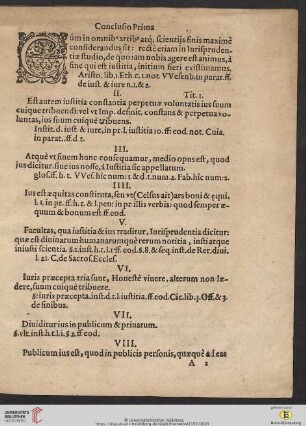 Conclusio Prima
Cùm in omnib⁹ artib⁹ atq́; scientijs finis maximè
considerandus sit: rectè etiam in Iurisprudenti-
æ studio, de quo iam nobis agere est animus, à
fine qui est iustitia, initium fieri existimamus.
Aristo. lib. 1. Eth. c. 1. not. VVesenb. in parat. ff.
de iust. & iure n. 1. & 2.
II. Tit. 1.
Est autem iustitia constantia perpetuæ voluntatis ius suum
cuique tribuendi: vel vt Imp. definit, constans & perpetua vo-
luntas, ius suum cuique tribuens.
Instit. d. iust. & iure, in pr. l. iustitia 10. ff. eod. not. Cuia.
in parat. ff. d. t.
III.
Atque vt finem hunc consequamur, medio opus est, quod
ius dicitur, sine ius nosse, á Iustitia sic appellatum.
glossiff. h. t. VVes. hîc num: 1. & d. t. num. 2. Fab. hîc num: 2.
IIII.
Ius est æquitas constituta, seu vt (Celsus ait) ars boni & equi.
l. 1. in pr. ff. h. t. & l. pen: in pr. illis verbis: quod semper æ-
quum & bonum est ff. eod.
V.
Facultas, qua iustitia & ius traditur, Iurisprudentia dicitur:
quæ est diuinarum humanarumquè rerum notitia, iusti atque
iniusti scientia. §. 1. inst. h. t. l. 1. ff. eod. §. 8. & seq. inst. de Rer. diui.
l. 21. C. de Sacros. Eccles.
VI.
Iuris præcepta tria sunt, Honestè viuere, alterum non læ-
dere, suum cuiquè tribuere.
§: iuris præcepta. inst. d. t. l. iustitia. ff. eod. Cic. lib. 3. Off. & 3.
de finibus.
VII.
Diuiditur ius in publicum & priuatum.
§. vlt. inst. h. t. l. 1. §. 2. ff. eod.
VIII.
Publicum ius est, quod in publicis personis, quæquè à les
A 2
© Universitätsbibliothek Heidelberg